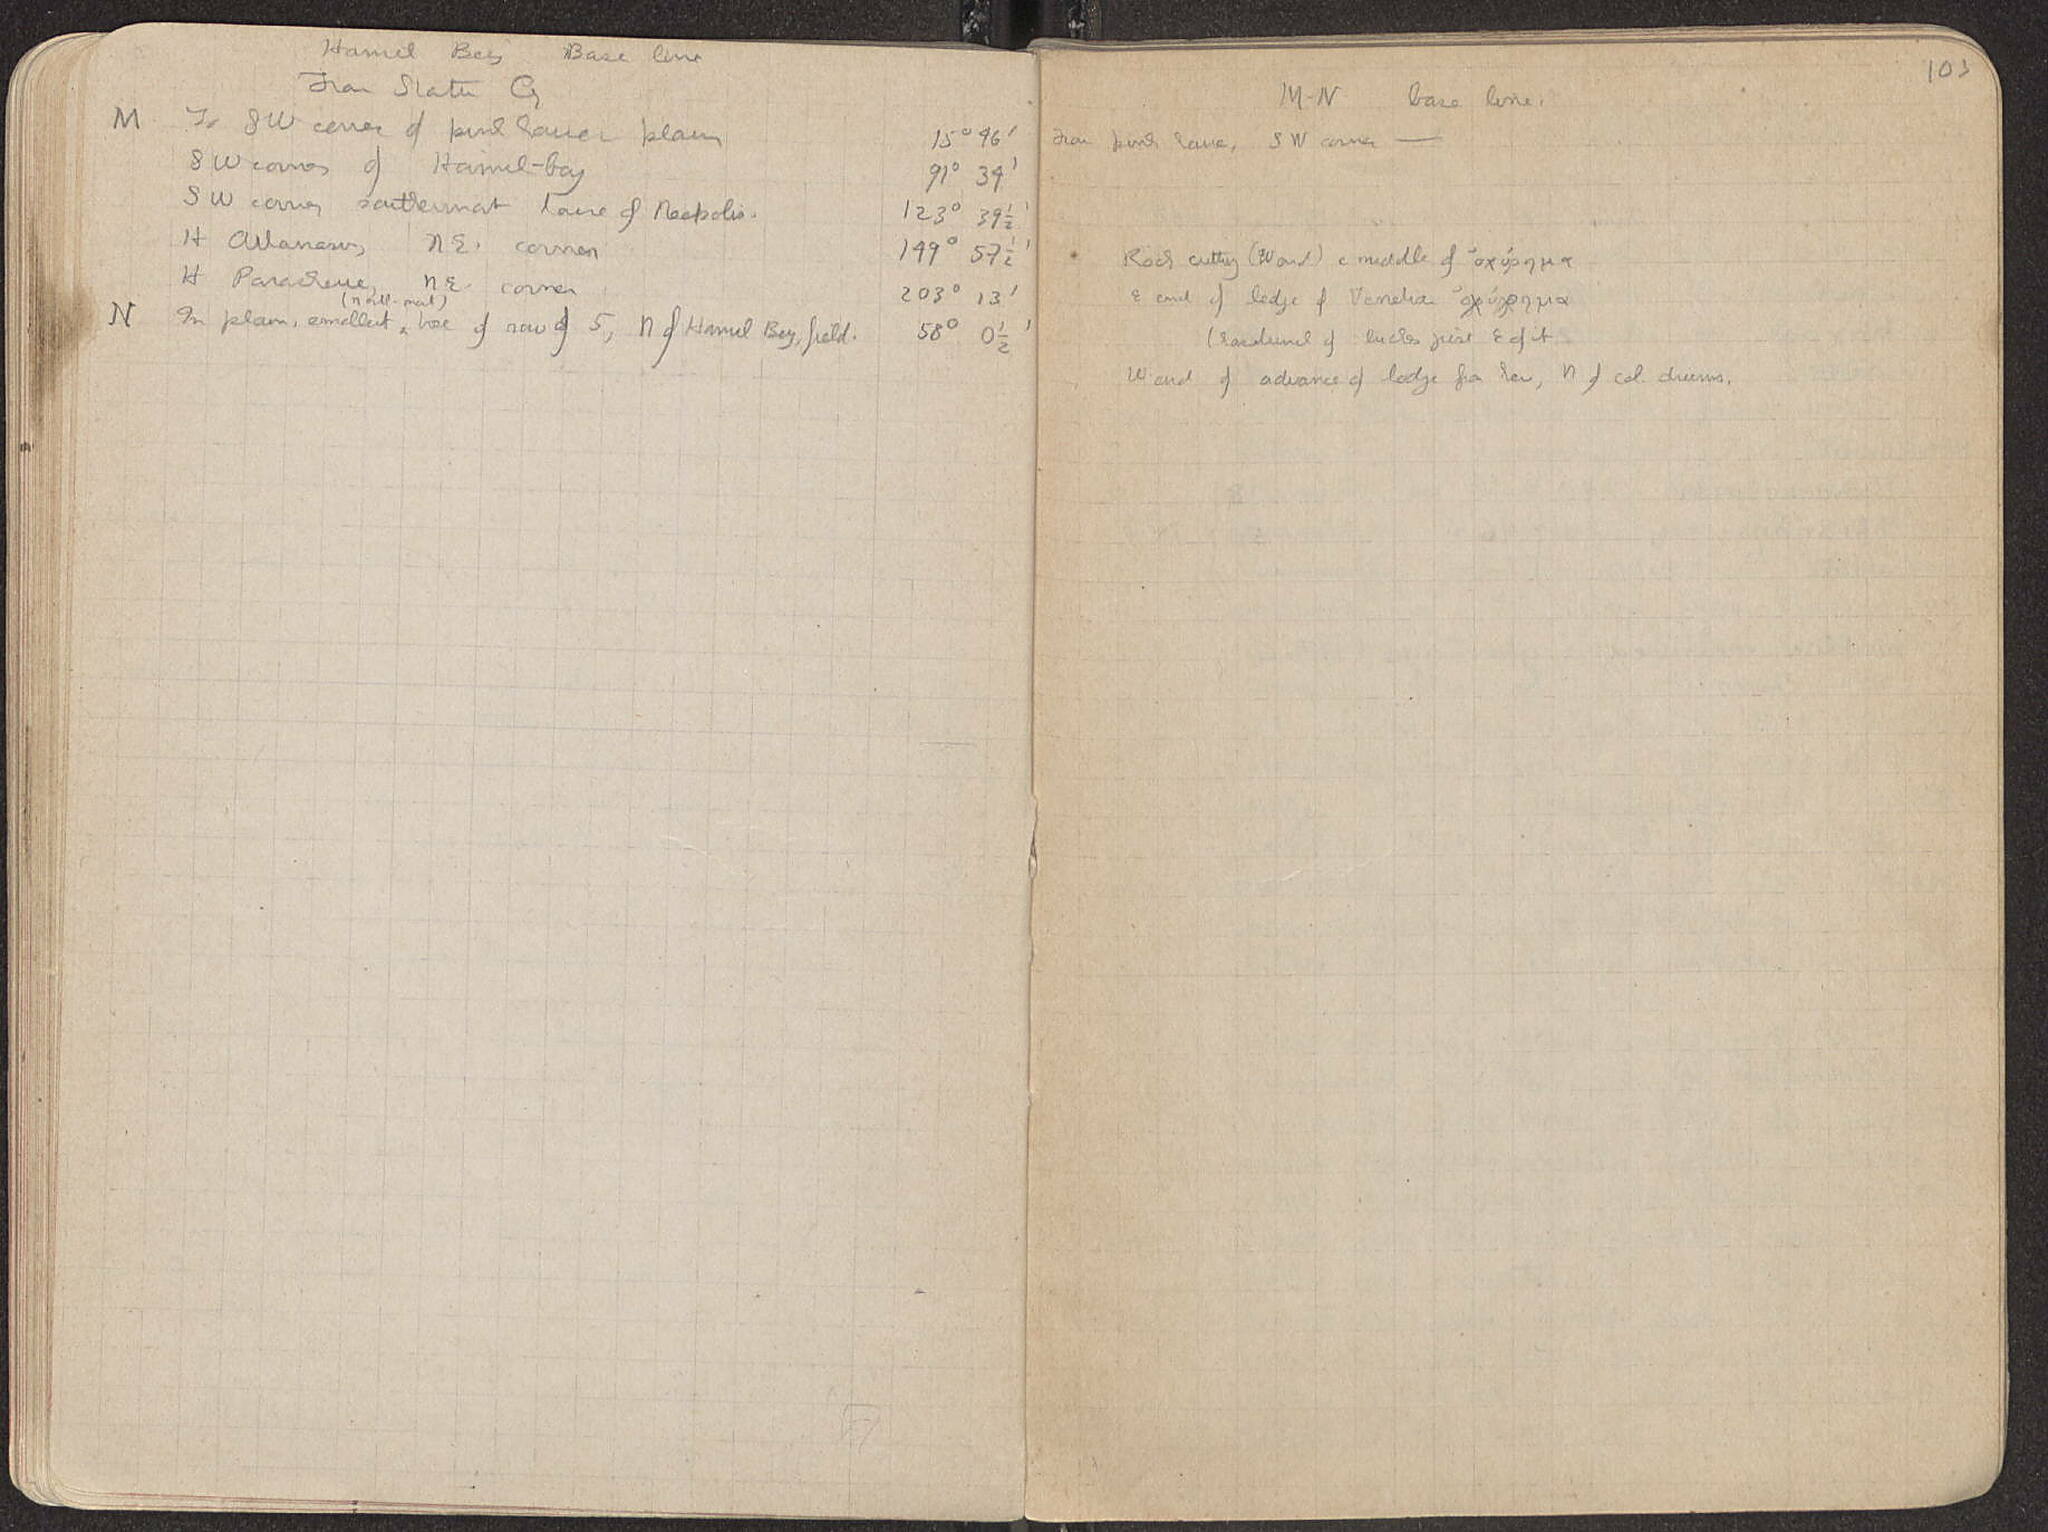 Hamil Bey Base line
From Station G
M To SW corner of pink house plain 15° 46'
SW corner of Hamil-bey 91° 34'
SW corner southernmost house of Neapolis. 123° 39½'
H Athanasios, NE. corner 149° 57½'
H Paraskeue, NE. corner 203° 13'
(northmost)
N In plain, smallest tree of row of 5, N of Hamil Bey, field. 58° 0½'
103
M-N base line.
From pink house, SW corner —
Rock cutting (W end) c middle of ὀχύρημα
E end of ledge of Venetian ὀχύρημα
( of just E of it
W end of advance of ledge for sea, N of col. drums.